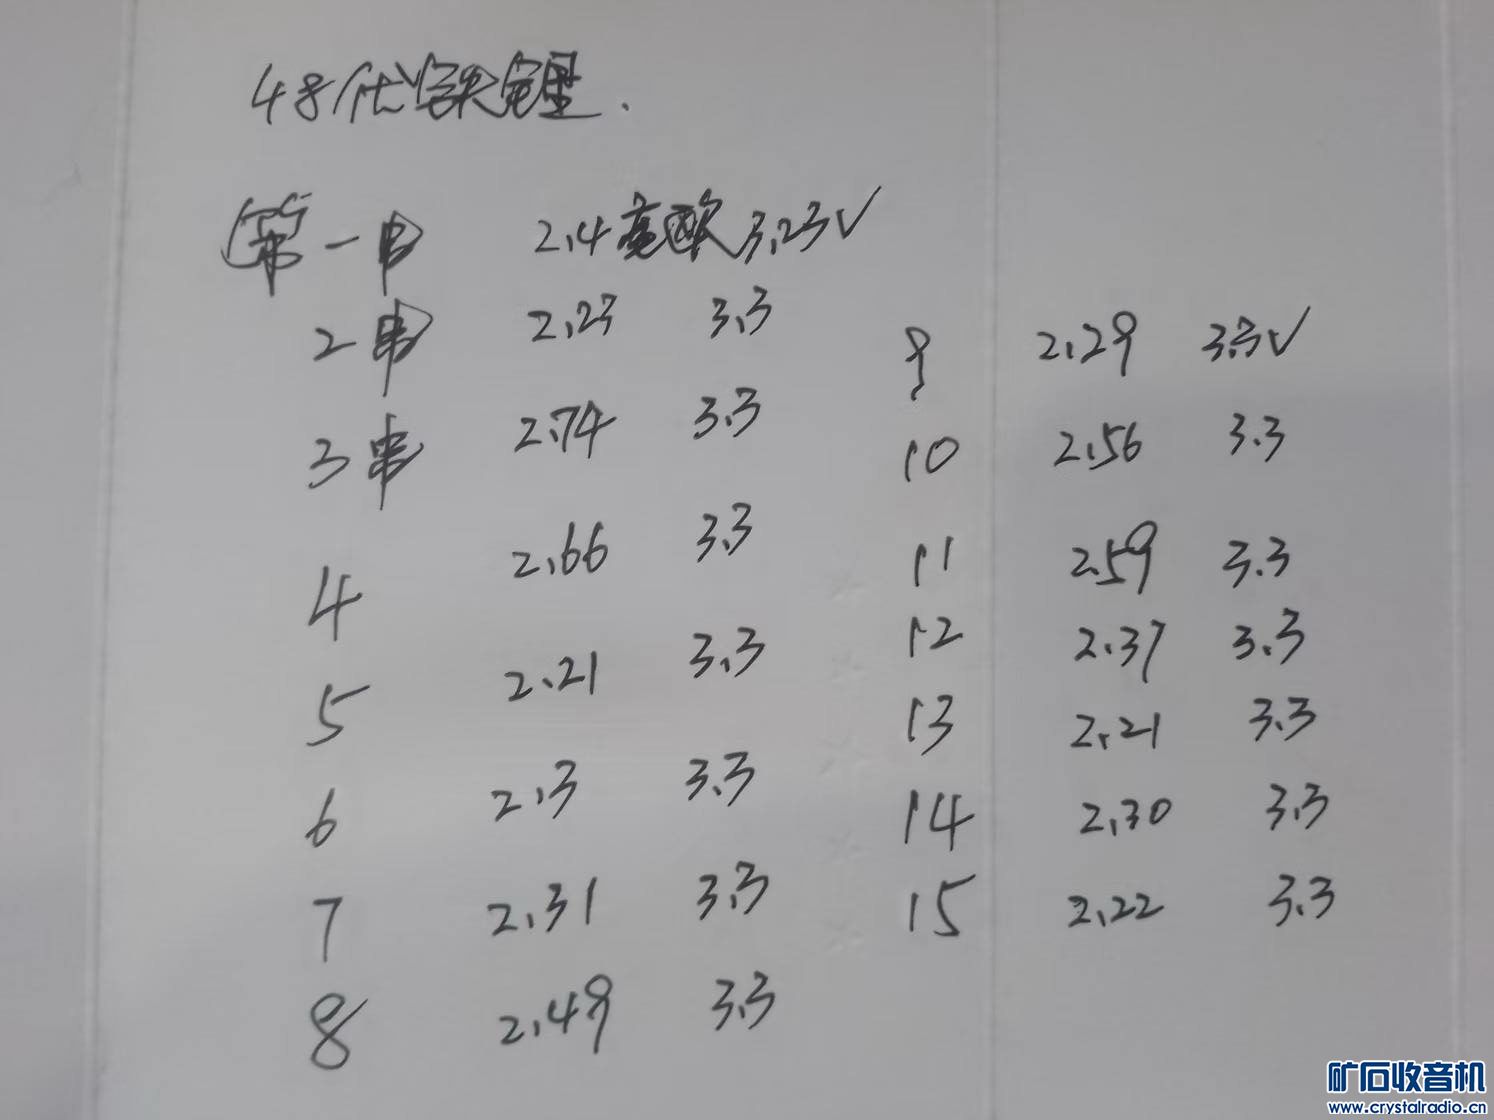 48伏铁锂.
第一串 2.4毫欧 3.23V
2串 2.23 3.3
3串 2.74 3.3
4 2.66 3.3
5 2.21 3.3
6 2.3 3.3
7 2.31 3.3
8 2.49 3.3
9 2.29 3.3V
10 2.56 3.3
11 2.59 3.3
12 2.37 3.3
13 2.21 3.3
14 2.30 3.3
15 2.22 3.3
矿石收音机
www.crystalradio.cn